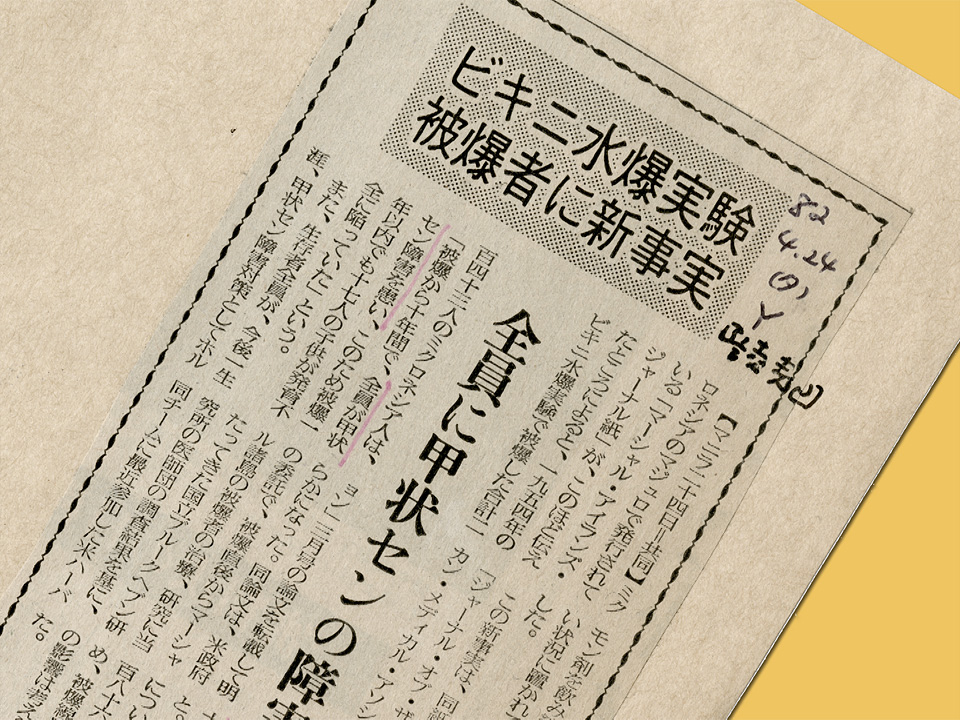 ビキニ水爆実験
被爆者に新事実
82
4.24
(夕)
Y
全員に甲状センの障害
【マニラ二十四日=共同】ミク
ロネシアのマジュロで発行されて
いる「マーシャル・アイランズ・
ジャーナル紙」が、このほど伝え
たところによると、一九五四年の
ビキニ水爆実験で被爆した合計二
百四十三人のミクロネシア人は、
「被爆から十年間で、全員が甲状
セン障害を患い、このため被爆一
年以内でも十七人の子供が発育不
全に陥っていた」という。
また、生存者全員が、今後一生
涯、甲状セン障害対策としてホル
モン剤を飲み
い状況に置かれて
した。
この新事実は、同紙
「ジャーナル・オブ・ザ
カン・メディカル・アソシ
ョン」三月号の論文を転載して明
らかになった。同論文は、米政府
の委託で、被爆直後からマーシャ
ル諸島の被爆者の治療、研究に当
たってきた国立ブルークヘブン研
究所の医師団の調査結果を基に、
同チームに最近参加した米ハーバ
と。
につい
百八十六
め、被爆線
の影響は考え
た。